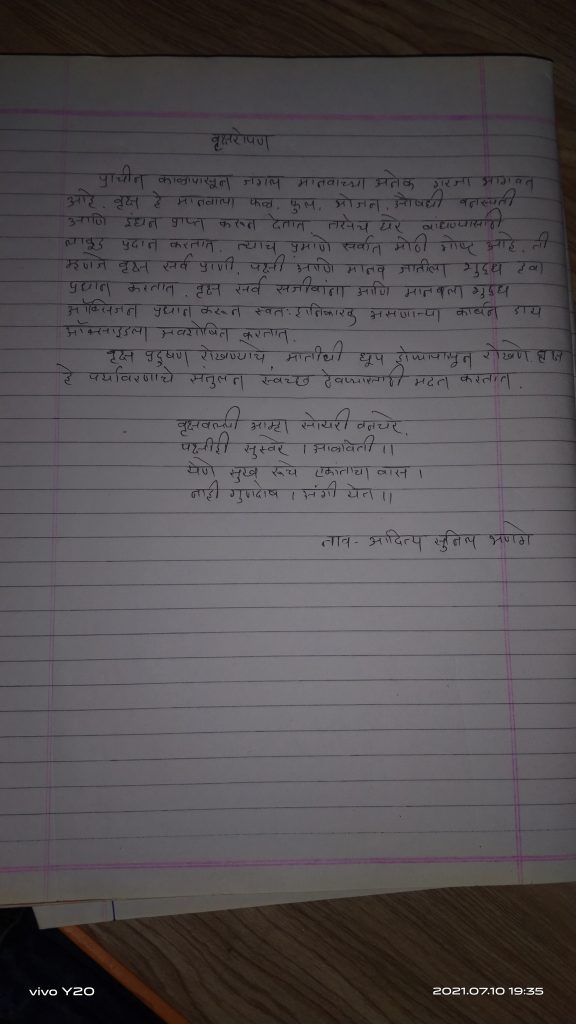 वृक्षरोपण
प्राचीन काळापासून जंगल मानवाच्या अनेक गरजा भागवत
आहे. वृक्ष हे मानवाला फळ, फुल, भोजन, औषधी वनस्पती
आणि इंधन प्राप्त करून देतात. तसेच घरे बांधण्यासाठी
लाकूड प्रदान करतात. त्याच प्रमाणे सर्वात मोठी गोष्ट आहे. ती
म्हणजे वृक्ष सर्व प्राणी, पक्षी आणि मानव जातीला शुद्ध हवा
प्रधान करतात. वृक्ष सर्व सजीवांना आणि मानवाला शुद्ध
ऑक्सिजन प्रधान करून स्वतः हानिकारक असणाऱ्या कार्बन डाय
ऑक्साइडला अवशोषित करतात.
वृक्ष प्रदुषण रोखण्याचे, मातीची धूप होण्यापासून रोखणे. वृक्ष
हे पर्यावरणाचे संतुलन स्वच्छ ठेवण्यासाठी मदत करतात.
वृक्षवल्ली आम्हा सोयरी वनचरे,
पक्षीही सुस्वरे । आळविती ।।
येणे सुखे रुचे एकांताचा वास ।
नाही गुणदोष । अंगी येत ।।
नाव - आदित्य सुनिल
vivo Y20
2021.07.10 19:35